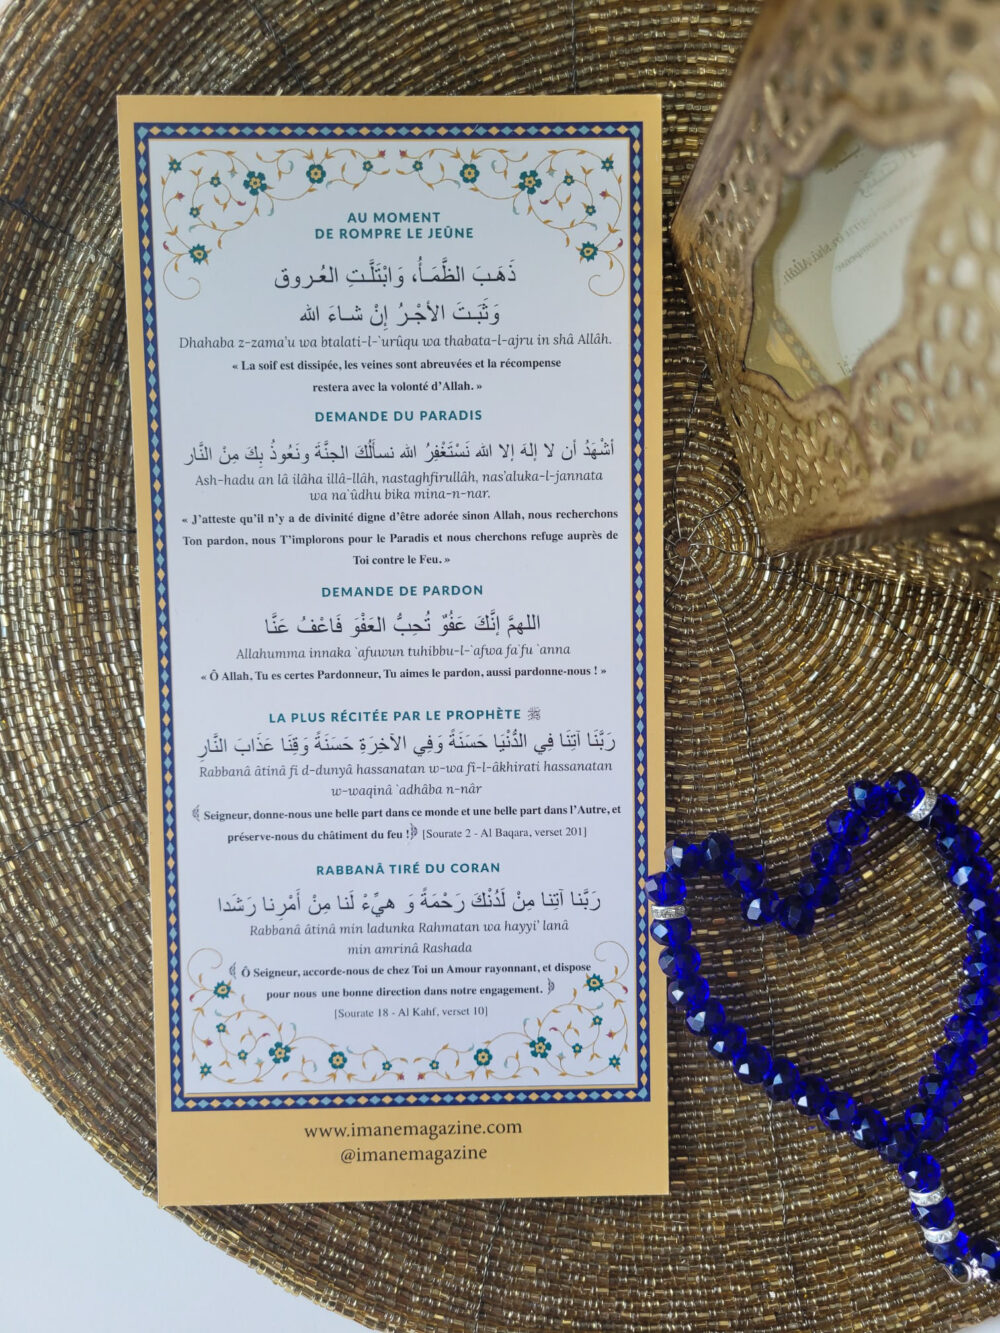 AU MOMENT
DE ROMPRE LE JEÛNE
ذَهَبَ الظَّمَـأُ، وَ ابْتَلَّـتِ العُـروق
وَ ثَبَـتَ الأجْـرُ إنْ شـاءَ الله
Dhahaba z-zama'u wa btalati-l-`urûqu wa thabata-l-ajru in shâ Allâh.
« La soif est dissipée, les veines sont abreuvées et la récompense
restera avec la volonté d'Allah. »
DEMANDE DU PARADIS
أشْهَدُ أن لا إلهَ إلا الله نَسْتَغْفِرُ الله نسألُكَ الجنَّةَ ونَعُوذُ بِكَ مِنْ النَّار
Ash-hadu an lâ ilâha illâ-llâh, nastaghfirullâh, nas'aluka-l-jannata
wa na`ûdhu bika mina-n-nar.
« J'atteste qu'il n'y a de divinité digne d'être adorée sinon Allah, nous recherchons
Ton pardon, nous T'implorons pour le Paradis et nous cherchons refuge auprès de
Toi contre le Feu. »
DEMANDE DE PARDON
اللـهمَّ إنَّكَ عَفُوٌ تُحِبُّ العَفْوَ فَاعْـفُ عَنَّا
Allahumma innaka `afuwun tuhibbu-l-`afwa fa`fu `anna
« Ô Allah, Tu es certes Pardonneur, Tu aimes le pardon, aussi pardonne-nous ! »
LA PLUS RÉCITÉE PAR LE PROPHÈTE ﷺ
رَبَّنَا آتِنَا فِي الدُّنْيَا حَسَنَةً وَفِي الآخِرَةِ حَسَنَةً وَقِنَا عَذَابَ النَّارِ
Rabbanâ âtinâ fî d-dunyâ hassanatan w-wa fî-l-âkhirati hassanatan
w-waqinâ `adhâba n-nâr
﴾ Seigneur, donne-nous une belle part dans ce monde et une belle part dans l'Autre, et
préserve-nous du châtiment du feu !﴿ [Sourate 2 - Al Baqara, verset 201]
RABBANÂ TIRÉ DU CORAN
رَبَّنا آتِنا مِنْ لَدُنْكَ رَحْمَةً وَ هيِّءْ لَنا مِنْ أَمْرِنا رَشَدا
Rabbanâ âtinâ min ladunka Rahmatan wa hayyi' lanâ
min amrinâ Rashada
﴾ Ô Seigneur, accorde-nous de chez Toi un Amour rayonnant, et dispose
pour nous une bonne direction dans notre engagement. ﴿
[Sourate 18 - Al Kahf, verset 10]
www.imanemagazine.com
@imanemagazine